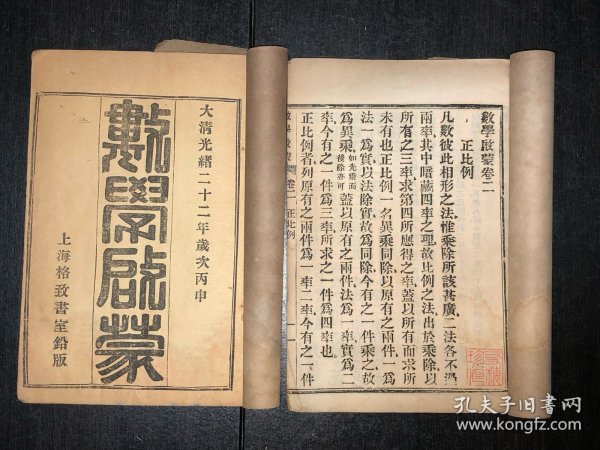 大清光緒二十二年歲次丙申
數學啟蒙
上海格致書室鉛版
數學啟蒙卷二
正比例
凡數彼此相形之法惟乘除所該甚廣二法各不過
兩率其中暗藏四率之理故比例之法出於乘除以
所有之三率求第四所應得之率蓋以所有而求所
未有也正比例一名異乘同除以原有之兩件一爲
法一爲實以法除實故爲同除今有之一件乘之故
爲異乘如先乘而後除亦可蓋以原有之兩件法爲一率實爲二
率今有之一件爲三率所求之一件爲四率也
正比例者列原有之兩件爲一率二率今有之一件
數學啟蒙 卷二 正比例
孔夫子旧书网
www.kongfz.com